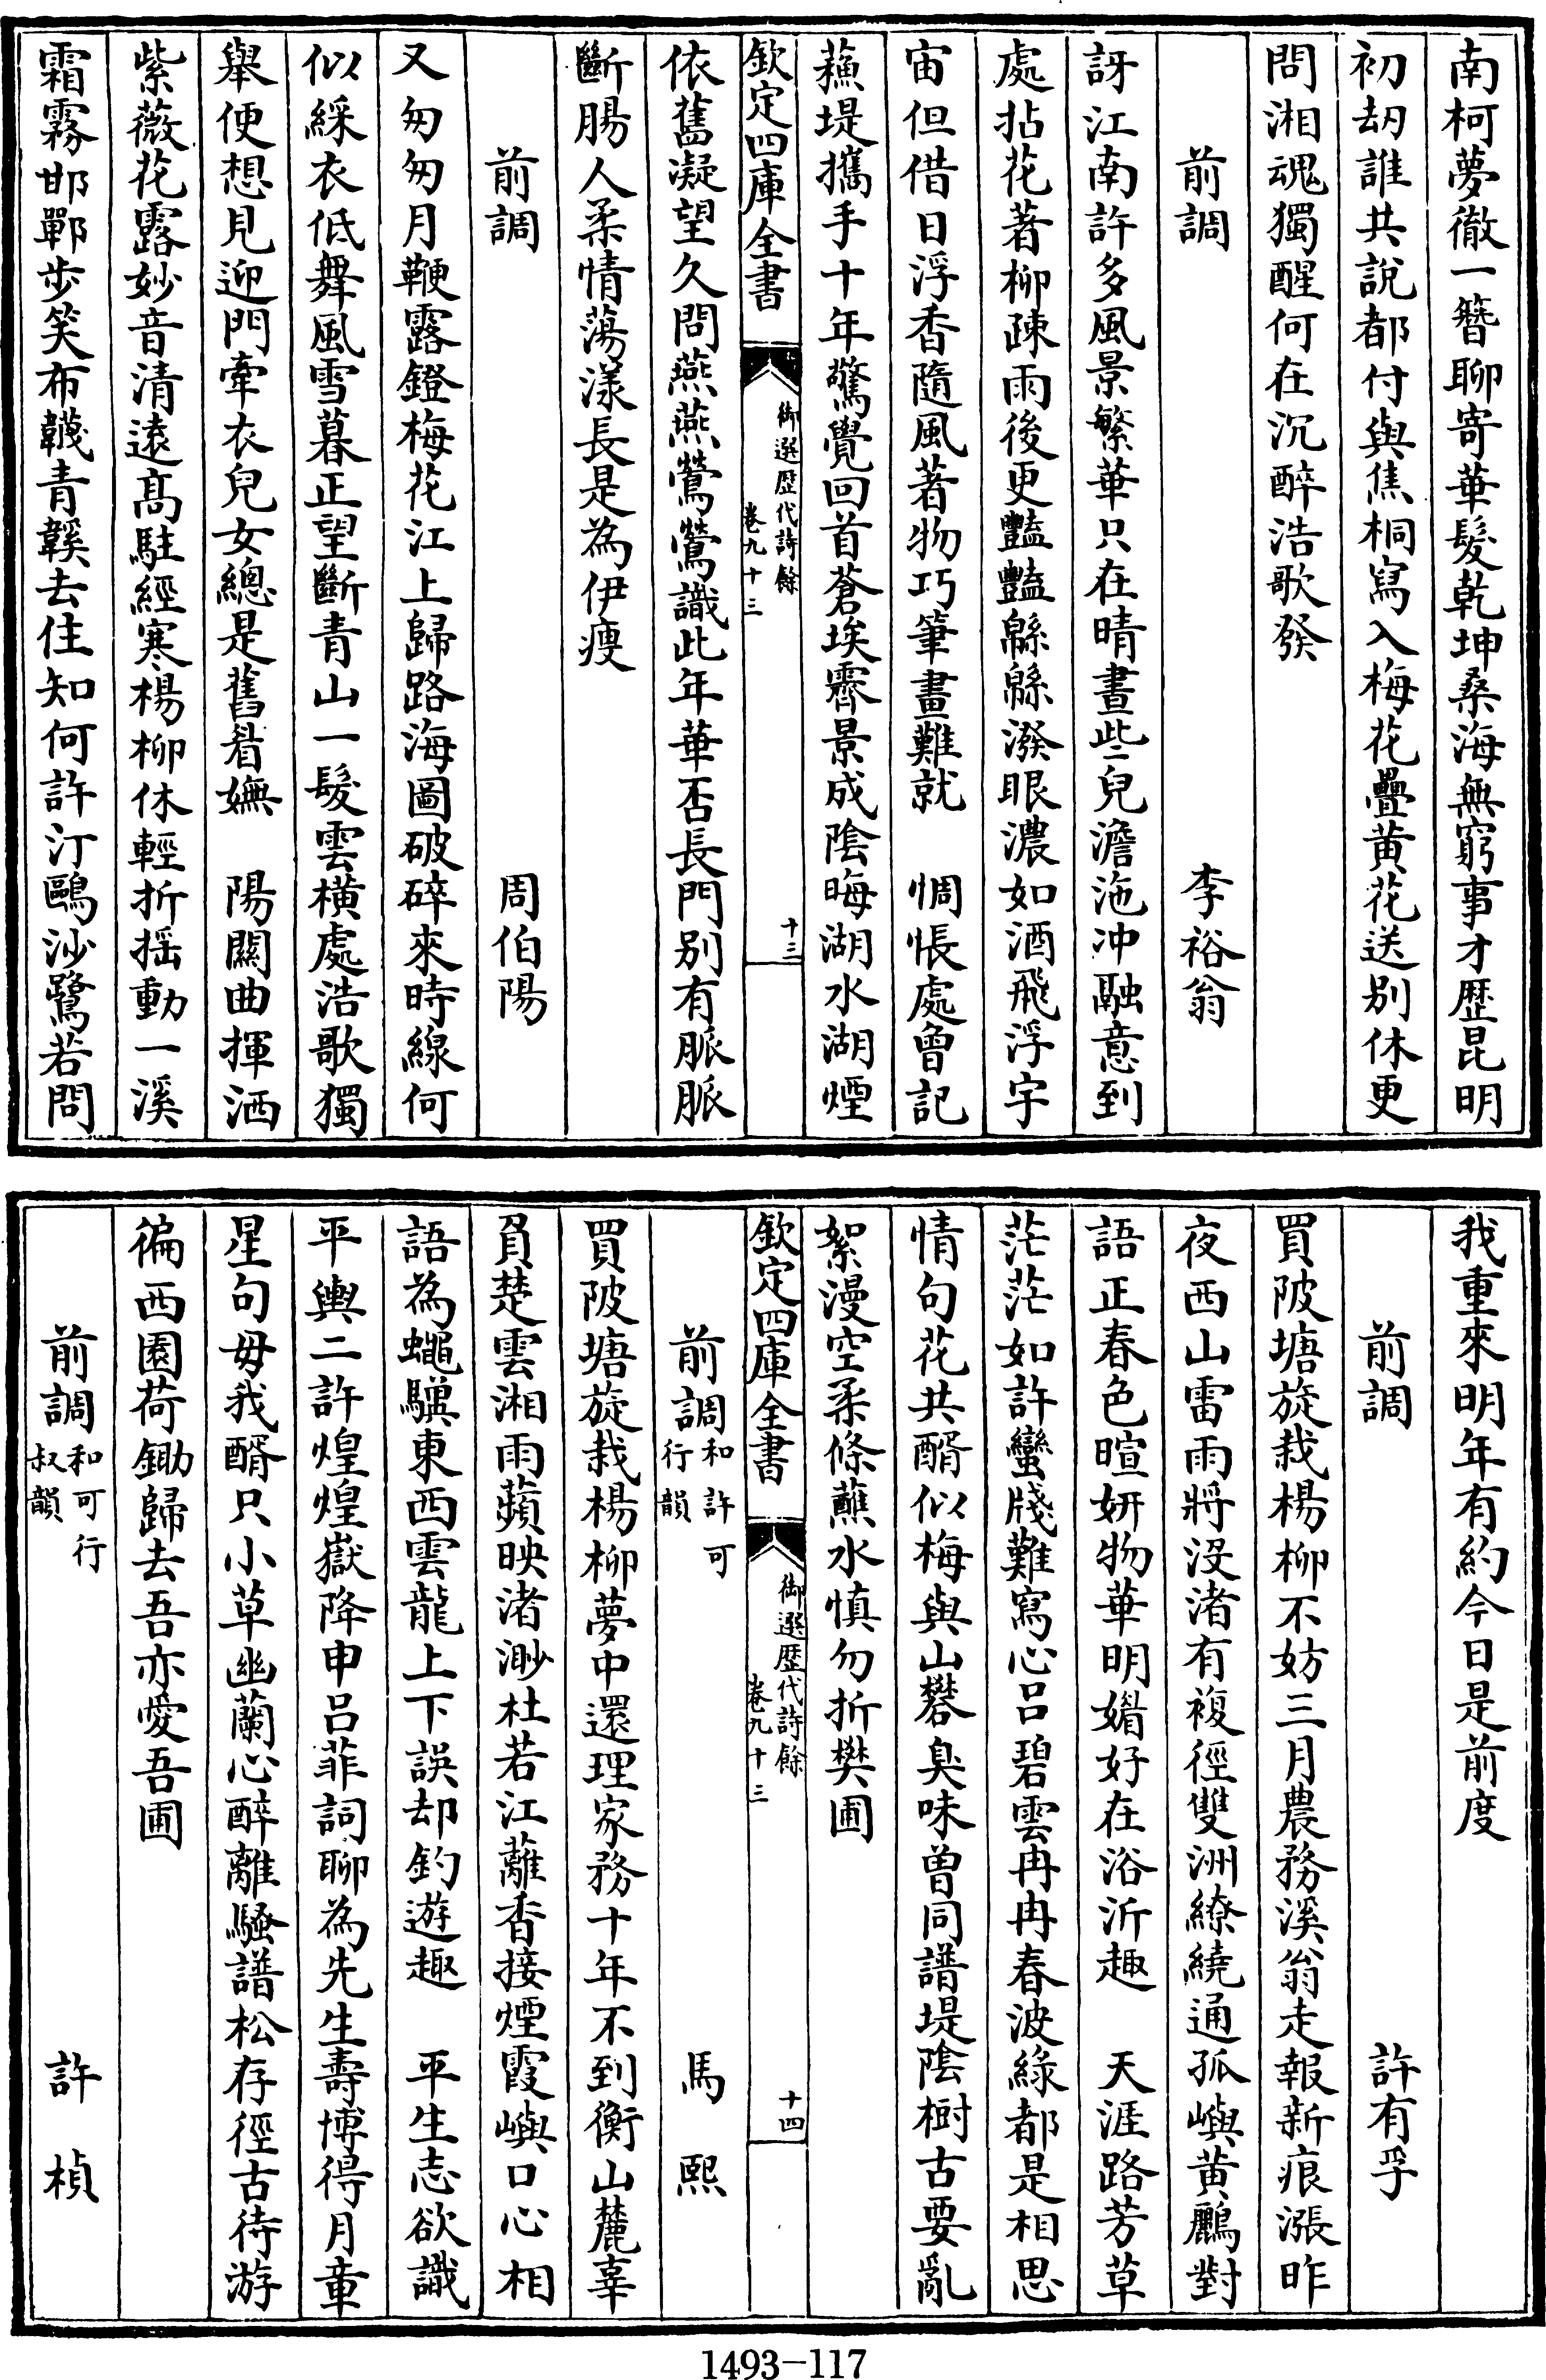 南柯夢徹一簪聊寄華髮乾坤桑海無窮事才歴昆明
初刼誰共說都付與焦桐寫入梅花疊黄花送别休更
問湘魂獨醒何在沉醉浩歌發
前調　李裕翁
訝江南許多風景繁華只在晴晝些兒澹沲冲融意到
處拈花著柳疎雨後更豔豔緜緜潑眼濃如酒飛浮宇
宙但借日浮香隨風著物巧筆畫難就　惆悵處曾記
蘓堤攜手十年驚覺回首蒼埃霽景成陰晦湖水湖煙
欽定四庫全書　御選歴代詩餘　卷九十三　十三
依舊凝望久問燕燕鶯鶯識此年華否長門别有脈脈
斷腸人柔情蕩漾長是為伊瘦
前調　周伯陽
又匆匆月鞭露鐙梅花江上歸路海圖破碎來時線何
似綵衣低舞風雪暮正望斷青山一髮雲横處浩歌獨
舉便想見迎門牽衣兒女總是舊眉嫵　陽關曲揮洒
紫薇花露妙音清遠髙駐經寒楊柳休輕折揺動一溪
霜霧邯鄲步笑布韈青鞵去住知何許汀鷗沙鷺若問
我重來明年有約今日是前度
前調　許有孚
買陂塘旋栽楊柳不妨三月農務溪翁走報新痕漲昨
夜西山雷雨將沒渚有複徑雙洲繚繞通孤嶼黄鸝對
語正春色暄妍物華明媚好在浴沂趣　天涯路芳草
茫茫如許蠻牋難寫心吕碧雲冉冉春波綠都是相思
情句花共醑似梅與山礬臭味曾同譜堤陰樹古要亂
絮漫空柔條蘸水慎勿折樊圃
欽定四庫全書　御選歴代詩餘　卷九十三　十四
前調和許可行韻　馬熙
買陂塘旋栽楊柳夢中還理家務十年不到衡山麓辜
負楚雲湘雨蘋映渚渺杜若江蘺香接煙霞嶼口心相
語為蠅驥東西雲龍上下誤却釣遊趣　平生志欲識
平輿二許煌煌嶽降申吕菲詞聊為先生壽博得月章
星句毋我醑只小草幽蘭心醉離騷譜松存徑古待游
徧西園荷鋤歸去吾亦愛吾圃
前調和可行叔韻　許楨
1493—117